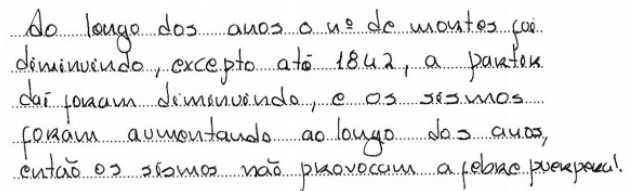 Ao longo dos anos o nº de mortes foi
diminuindo, excepto até 1842, a partir
daí foram diminuindo, e os sismos
foram aumentando ao longo dos anos,
então os sismos não provocam a febre puerperal.